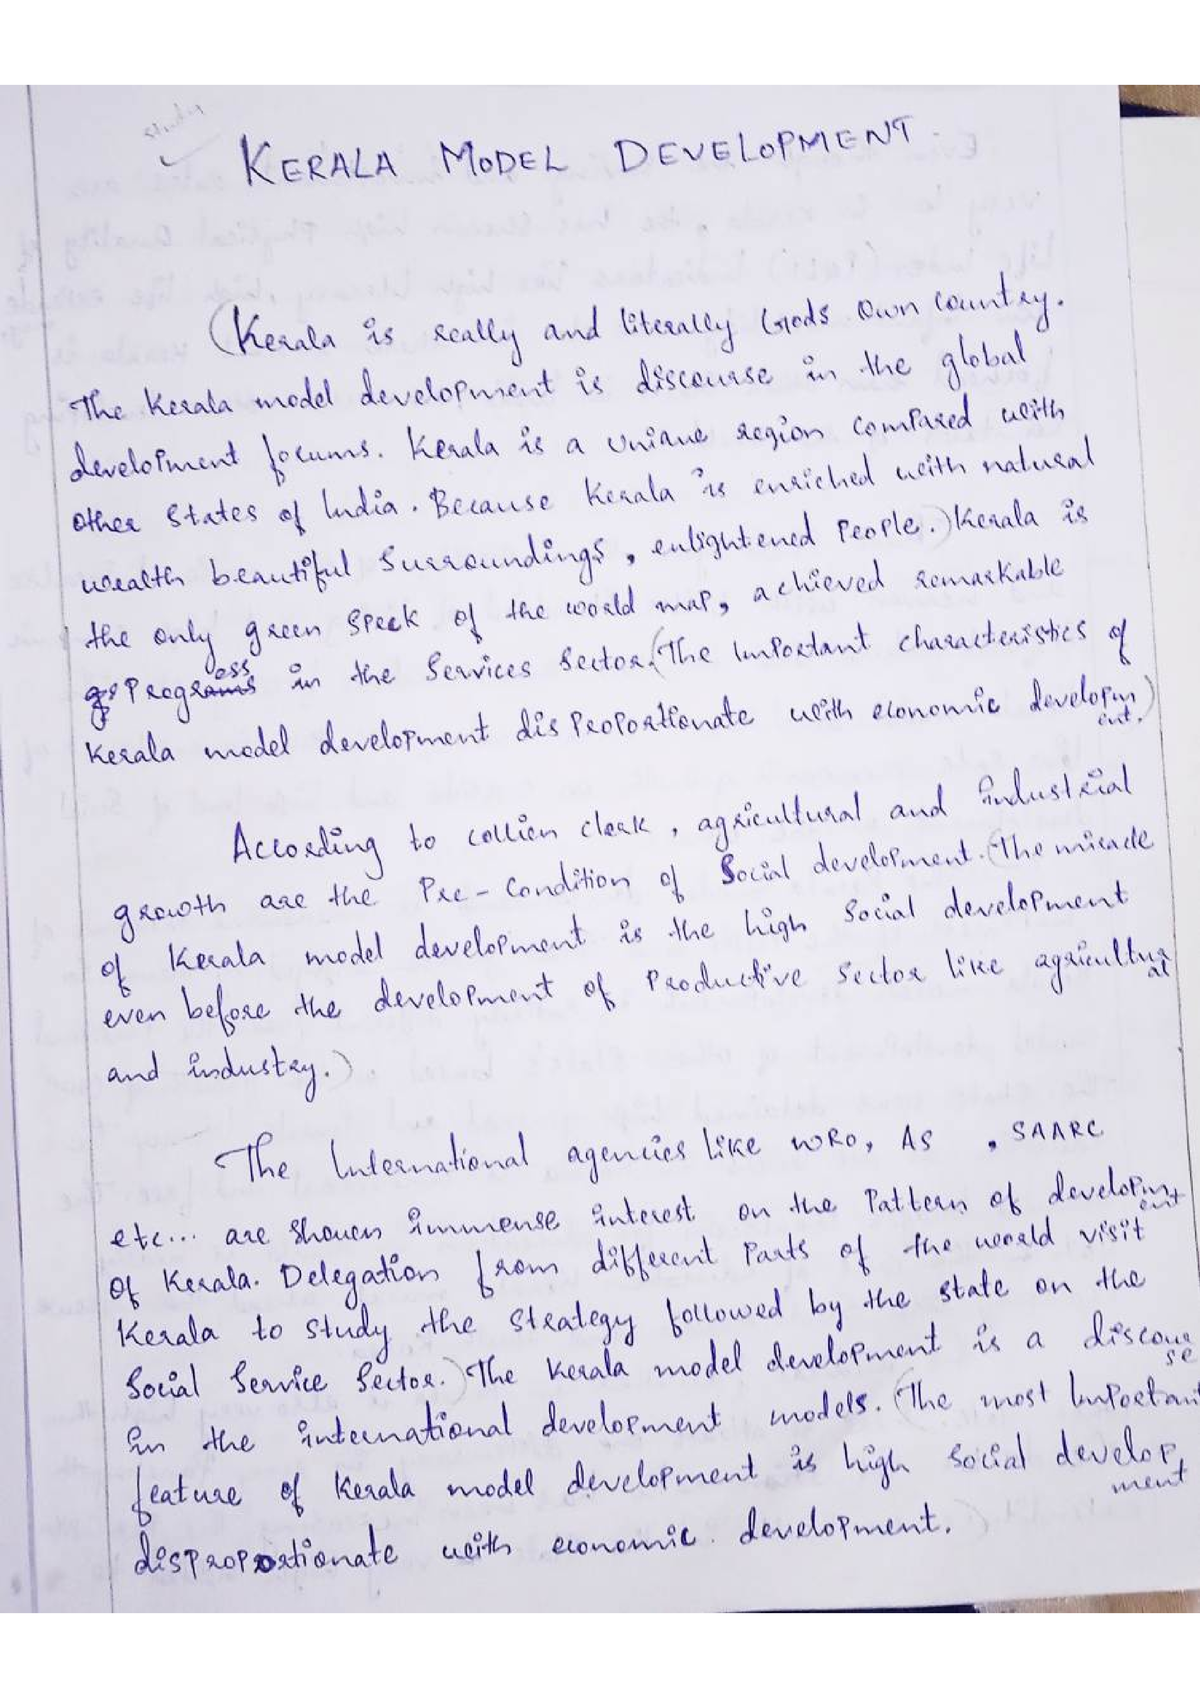 KERALA MODEL DEVELOPMENT.
(Kerala is really and literally Gods Own Country.
The Kerala model development is discourse in the global
development forums. Kerala is a unique region compared with
other States of India. Because Kerala is enriched with natural
wealth beautiful Surroundings, enlightened People.) Kerala is
the only green Speck of the world map, achieved remarkable
Progress in the Services Sector. (The Important characteristics of
Kerala model development disproportionate with economic development.)
According to collien clerk, agricultural and industrial
growth are the Pre-Condition of Social development. (The miracle
of Kerala model development is the high Social development
even before the development of Productive Sector like agricultural
and industry.)
The International agencies like WRO, AS , SAARC
etc... are shown immense interest on the Pattern of development
of Kerala. Delegation from different Parts of the world visit
Kerala to study the Strategy followed by the state on the
Social Service Sector.) The Kerala model development is a discourse
in the international development models. (The most Important
feature of Kerala model development is high Social development
disproportionate with economic development.